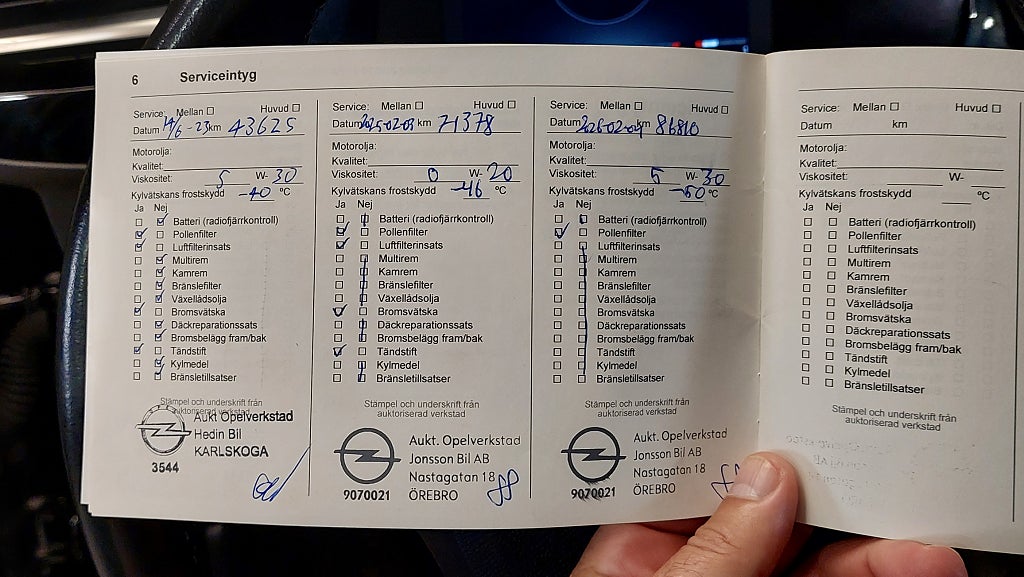 6 Serviceintyg
Service: Mellan ☐ Huvud ☐
Datum 14/6-23 km 43625
Motorolja:
Kvalitet:
Viskositet: 5 W- 30
Kylvätskans frostskydd -40 °C
Ja Nej
Batteri (radiofjärrkontroll)
Pollenfilter
Luftfilterinsats
Multirem
Kamrem
Bränslefilter
Växellådsolja
Bromsvätska
Däckreparationssats
Bromsbelägg fram/bak
Tändstift
Kylmedel
Bränsletillsatser
Stämpel och underskrift från
auktoriserad verkstad
Aukt Opelverkstad
Hedin Bil
KARLSKOGA
3544
Service: Mellan ☐ Huvud ☐
Datum 2025-02-03 km 71378
Motorolja:
Kvalitet:
Viskositet: 0 W- 20
Kylvätskans frostskydd -46 °C
Ja Nej
Batteri (radiofjärrkontroll)
Pollenfilter
Luftfilterinsats
Multirem
Kamrem
Bränslefilter
Växellådsolja
Bromsvätska
Däckreparationssats
Bromsbelägg fram/bak
Tändstift
Kylmedel
Bränsletillsatser
Stämpel och underskrift från
auktoriserad verkstad
Aukt. Opelverkstad
Jonsson Bil AB
Nastagatan 18
9070021 ÖREBRO
Service: Mellan ☐ Huvud ☐
Datum 2026-02-04 km 86810
Motorolja:
Kvalitet:
Viskositet: 5 W- 30
Kylvätskans frostskydd -50 °C
Ja Nej
Batteri (radiofjärrkontroll)
Pollenfilter
Luftfilterinsats
Multirem
Kamrem
Bränslefilter
Växellådsolja
Bromsvätska
Däckreparationssats
Bromsbelägg fram/bak
Tändstift
Kylmedel
Bränsletillsatser
Stämpel och underskrift från
auktoriserad verkstad
Aukt. Opelverkstad
Jonsson Bil AB
Nastagatan 18
9070021 ÖREBRO
Service: Mellan ☐ Huvud ☐
Datum km
Motorolja:
Kvalitet:
Viskositet: W-
Kylvätskans frostskydd °C
Ja Nej
Batteri (radiofjärrkontroll)
Pollenfilter
Luftfilterinsats
Multirem
Kamrem
Bränslefilter
Växellådsolja
Bromsvätska
Däckreparationssats
Bromsbelägg fram/bak
Tändstift
Kylmedel
Bränsletillsatser
Stämpel och underskrift från
auktoriserad verkstad